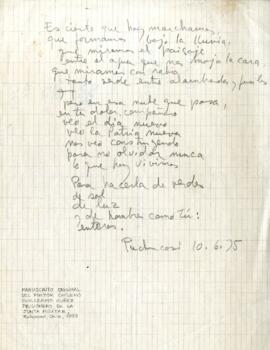 Es cierto que hoy marchamos
que formamos bajo la lluvia,
que miramos el paisaje,
entre el agua que nos moja la cara,
que miramos con rabia
tanto verde entre alambradas, y
pero en esa nube que pasa,
en tu dolor compañero
veo el día nuevo
veo la Patria nueva
nos veo construyendo
para no olvidar nunca
lo que hoy vivimos
Para hacerla de verdes
de sol
de luz
y de hombres como tú:
enteros.
Puchuncaví 10.6.75
MANUSCRITO ORIGINAL
DEL PINTOR CHILENO
GUILLERMO NUÑEZ
PRISIONERO DE LA
JUNTA MILITAR,
CHILE, 1975